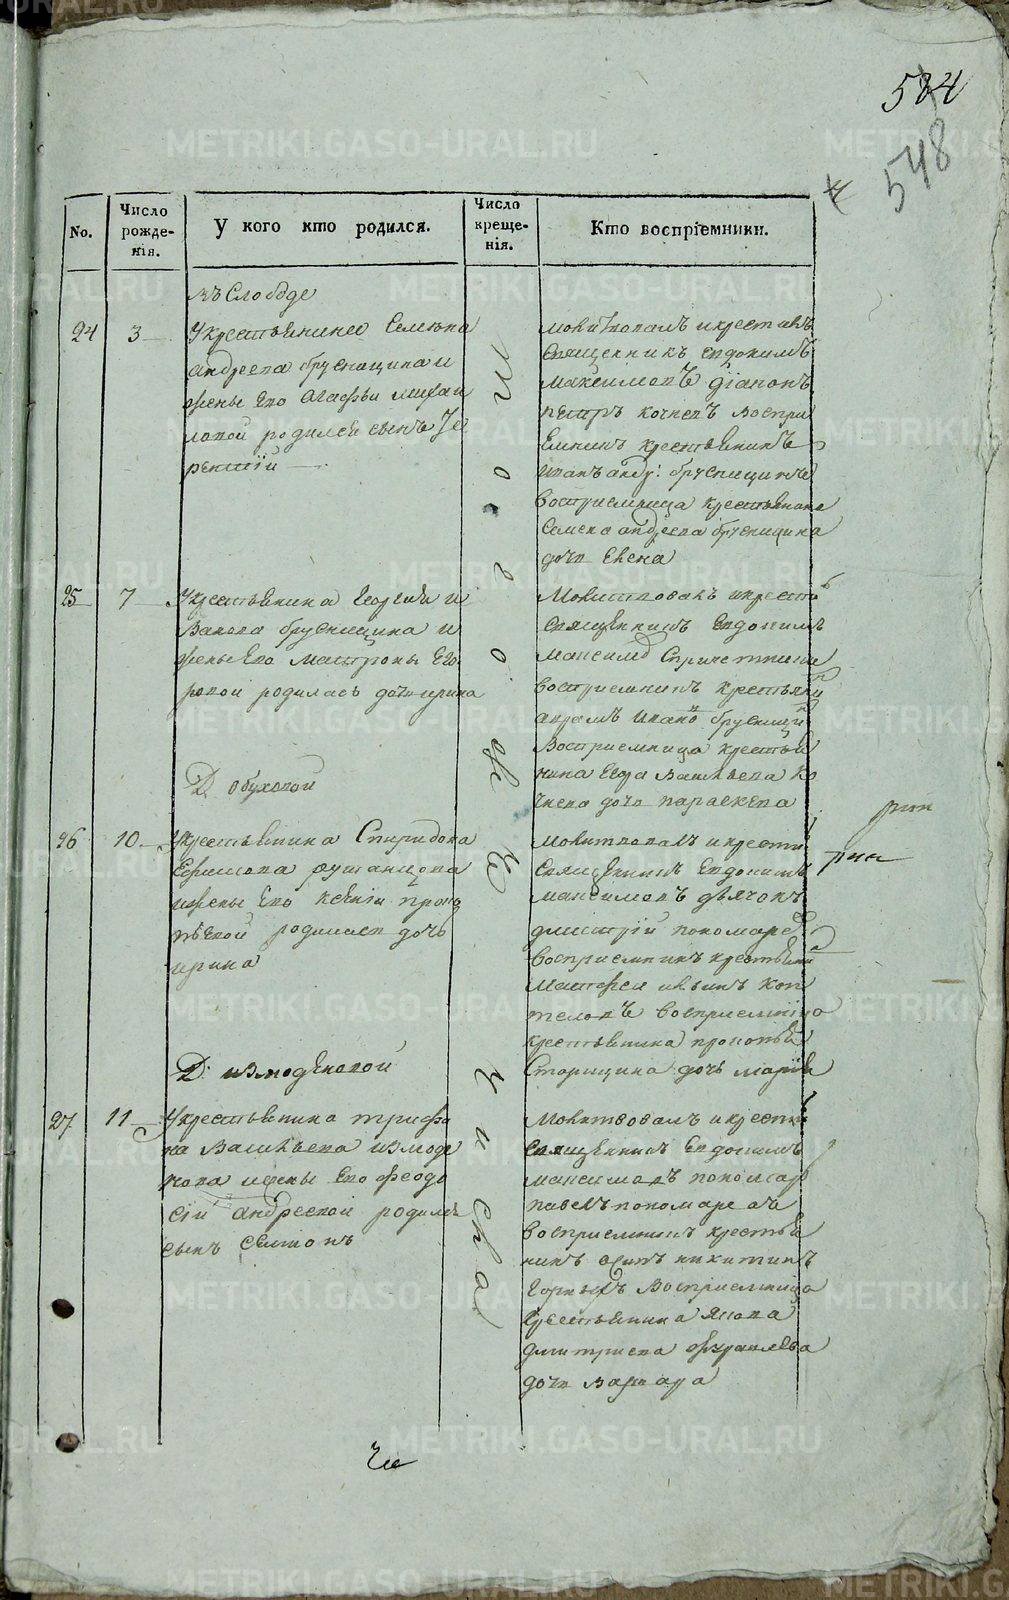 584
548
No.
Число рожденія.
У кого кто родился.
Число крещенія.
Кто воспріемники.
въ Слободе
24
3
У крестьянина Семиона
андреева брусницина и
жены Его Агафьи михаи
ловой родился сынъ Те
рентій
того же числа
молитвовалъ и крестилъ
священникъ Евдокимъ
Максимовъ діаконъ
петръ кочневъ воспри
емникъ крестьянинъ
иванъ анд: брусницинъ
восприемница крестьянина
Семена андреева брусницина
дочь Елена
25
7
У крестьянина Георгия и
ванова брусницина и
жены Его Матроны Его
ровой родилась дочь ирина
Молитвовалъ и крестилъ
священникъ Евдокимъ
Максимовъ
восприемникъ крестьянинъ
аврамъ
Восприемница крестья
нина Егора Васильева ко
чнева дочь параскева
Д. обуховой
26
10
У крестьянина Спиридона
Ефимова
и жены Его Ксении прокопь
евой родилась дочь
ирина
молитвовалъ и крестилъ
священникъ Евдокимъ
максимовъ дьячокъ
дмитрій пономаревъ
восприемникъ крестьянинъ
Матфеи
восприемница
крестьянина прокопья
Старицина дочь марія
Д. измоденовой
27
11
У крестьянина трифо
на Васильева измоде
нова и жены Его феодо
сіи андреевой родился
сынъ Симионъ
Молитвовалъ и крестилъ
священникъ Евдокимъ
максимовъ пономарь
павелъ пономаревъ
восприемникъ крестья
нинъ осипъ никитинъ
Горныхъ Восприемница
крестьянина Якова
дмитриева
дочь варвара
METRIKI.GASO-URAL.RU